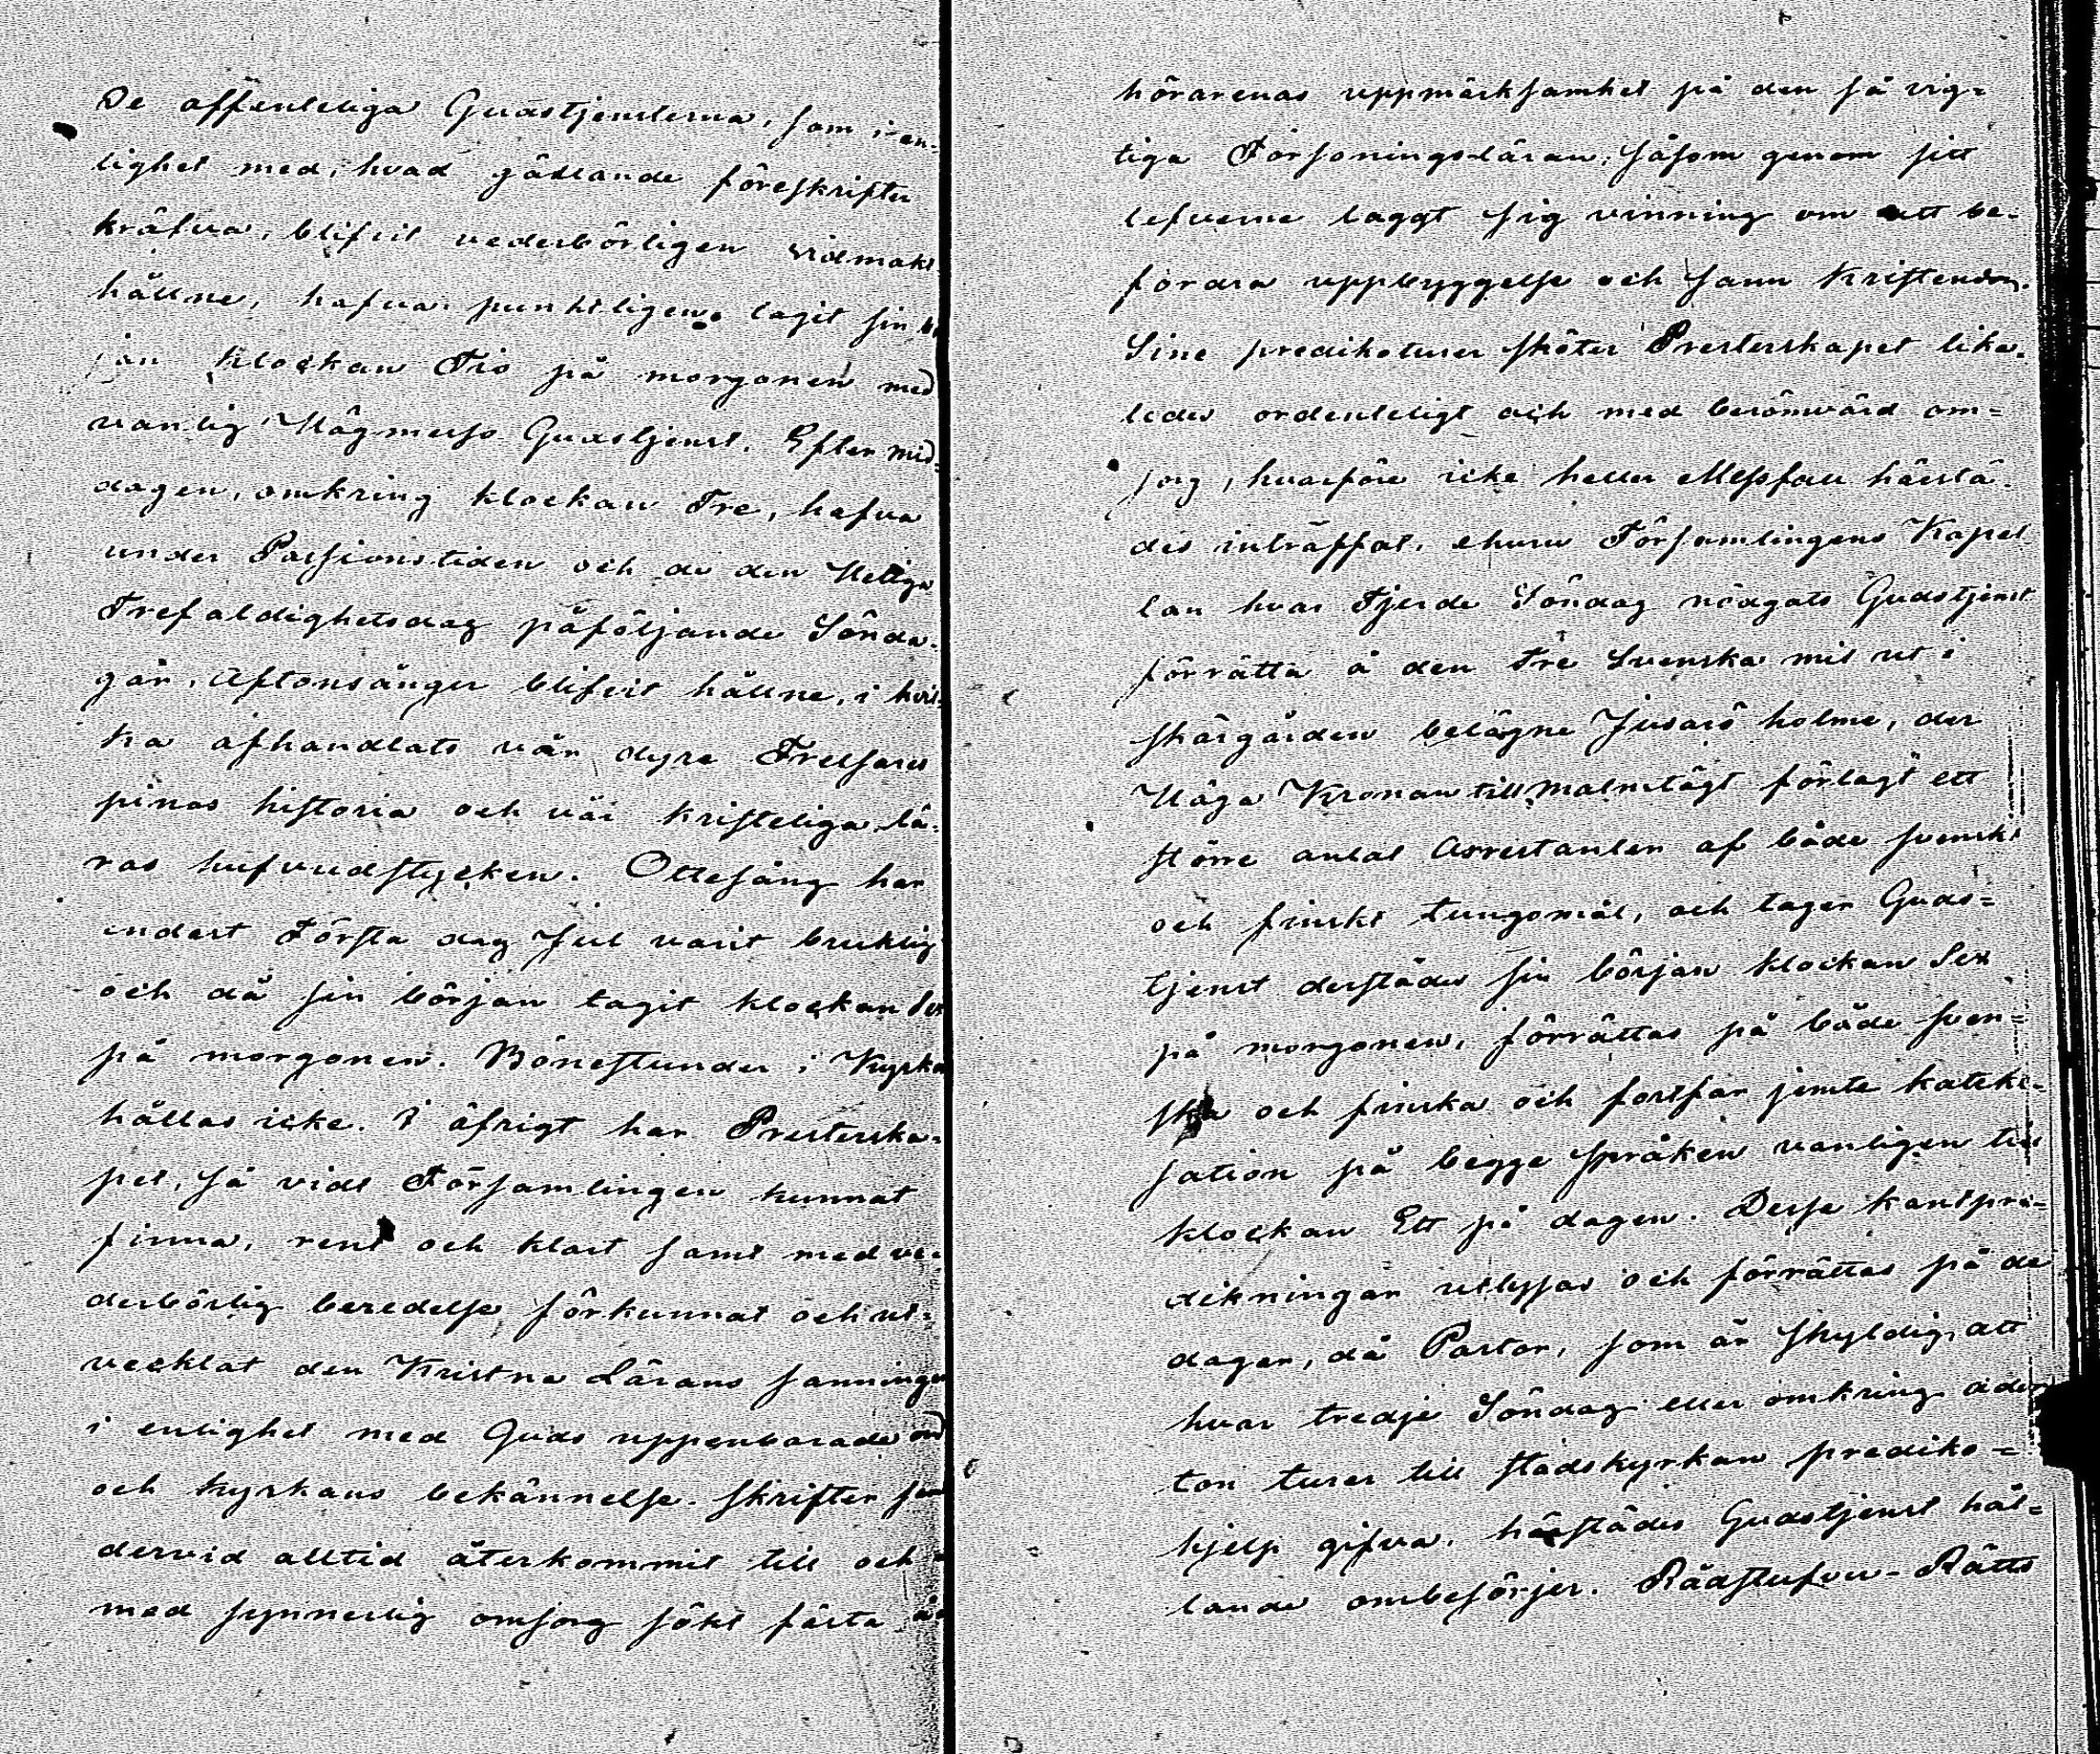 De offenteliga Gudstjensterna, som i en-
lighet med, hvad gällande föreskrifter
kräfva, blifvit vederbörligen vidmakt-
hållne, hafva punktligen tagit sin be
jan klockan Tio på morgonen med
vanlig Högmesso-Gudstjenst. Efter mid-
dagen, omkring klockan Tre, hafva
under Passionstiden och de den Heliga
Trefaldighetsdag påföljande Sönda-
gar, Aftonsånger blifvit hållne, i hvil-
ka afhandlats vår dyra Frelsares
pinas historia och vår kristeliga lä-
ras hufvudstycken. Ottesång har
endast Första dag Jul varit bruklig
och då sin början tagit klockan Sex
på morgonen. Bönestunder i Kyrka
hållas icke. I öfrigt har Presterska-
pet, så vidt Församlingen kunnat
finna, rent och klart samt med ve-
derbörlig beredelse förkunnat och ut-
vecklat den Kristna Lärans sanningar
i enlighet med Guds uppenbarade ord
och kyrkans bekännelse-skrifter samt
dervid alltid återkommit till och
med synnerlig omsorg sökt fästa å-
hörarenas uppmärksamhet på den så vig-
tiga Försonings-läran, såsom genom sitt
lefverne laggt sig vinning om att be-
fordra uppbyggelse och sann Kristendom.
Sine predikoturer sköter Presterskapet lika-
ledes ordenteligt och med berömvärd om-
sorg, hvarföre icke heller Messfall härstä-
des inträffat, ehuru Församlingens Kapel
lan hvar Fjerde Söndag nödgats Gudstjenst
förrätta å den Tre Svenska mil ut i
skärgården belägne Jusarö holme, der
Höga Kronan till Malmtägt förlagt ett
större antal Arrestanter af både svenskt
och finskt tungomål, och tager Guds-
tjenst derstädes sin början klockan Sex
på morgonen, förrättas på både sven-
ska och finska och fortfar jemte kateke-
sation på begge språken vanligen till
klockan Ett på dagen. Desse kantpre-
dikningar utlysas och förrättas på de
dagar, då Pastor, som är skyldig, att
hvar tredje Söndag eller omkring ader
ton turer till stadskyrkan prediko-
hjelp gifva, härstädes Gudstjenst hål-
lande ombesörjer. Rådstufvu-Rätts